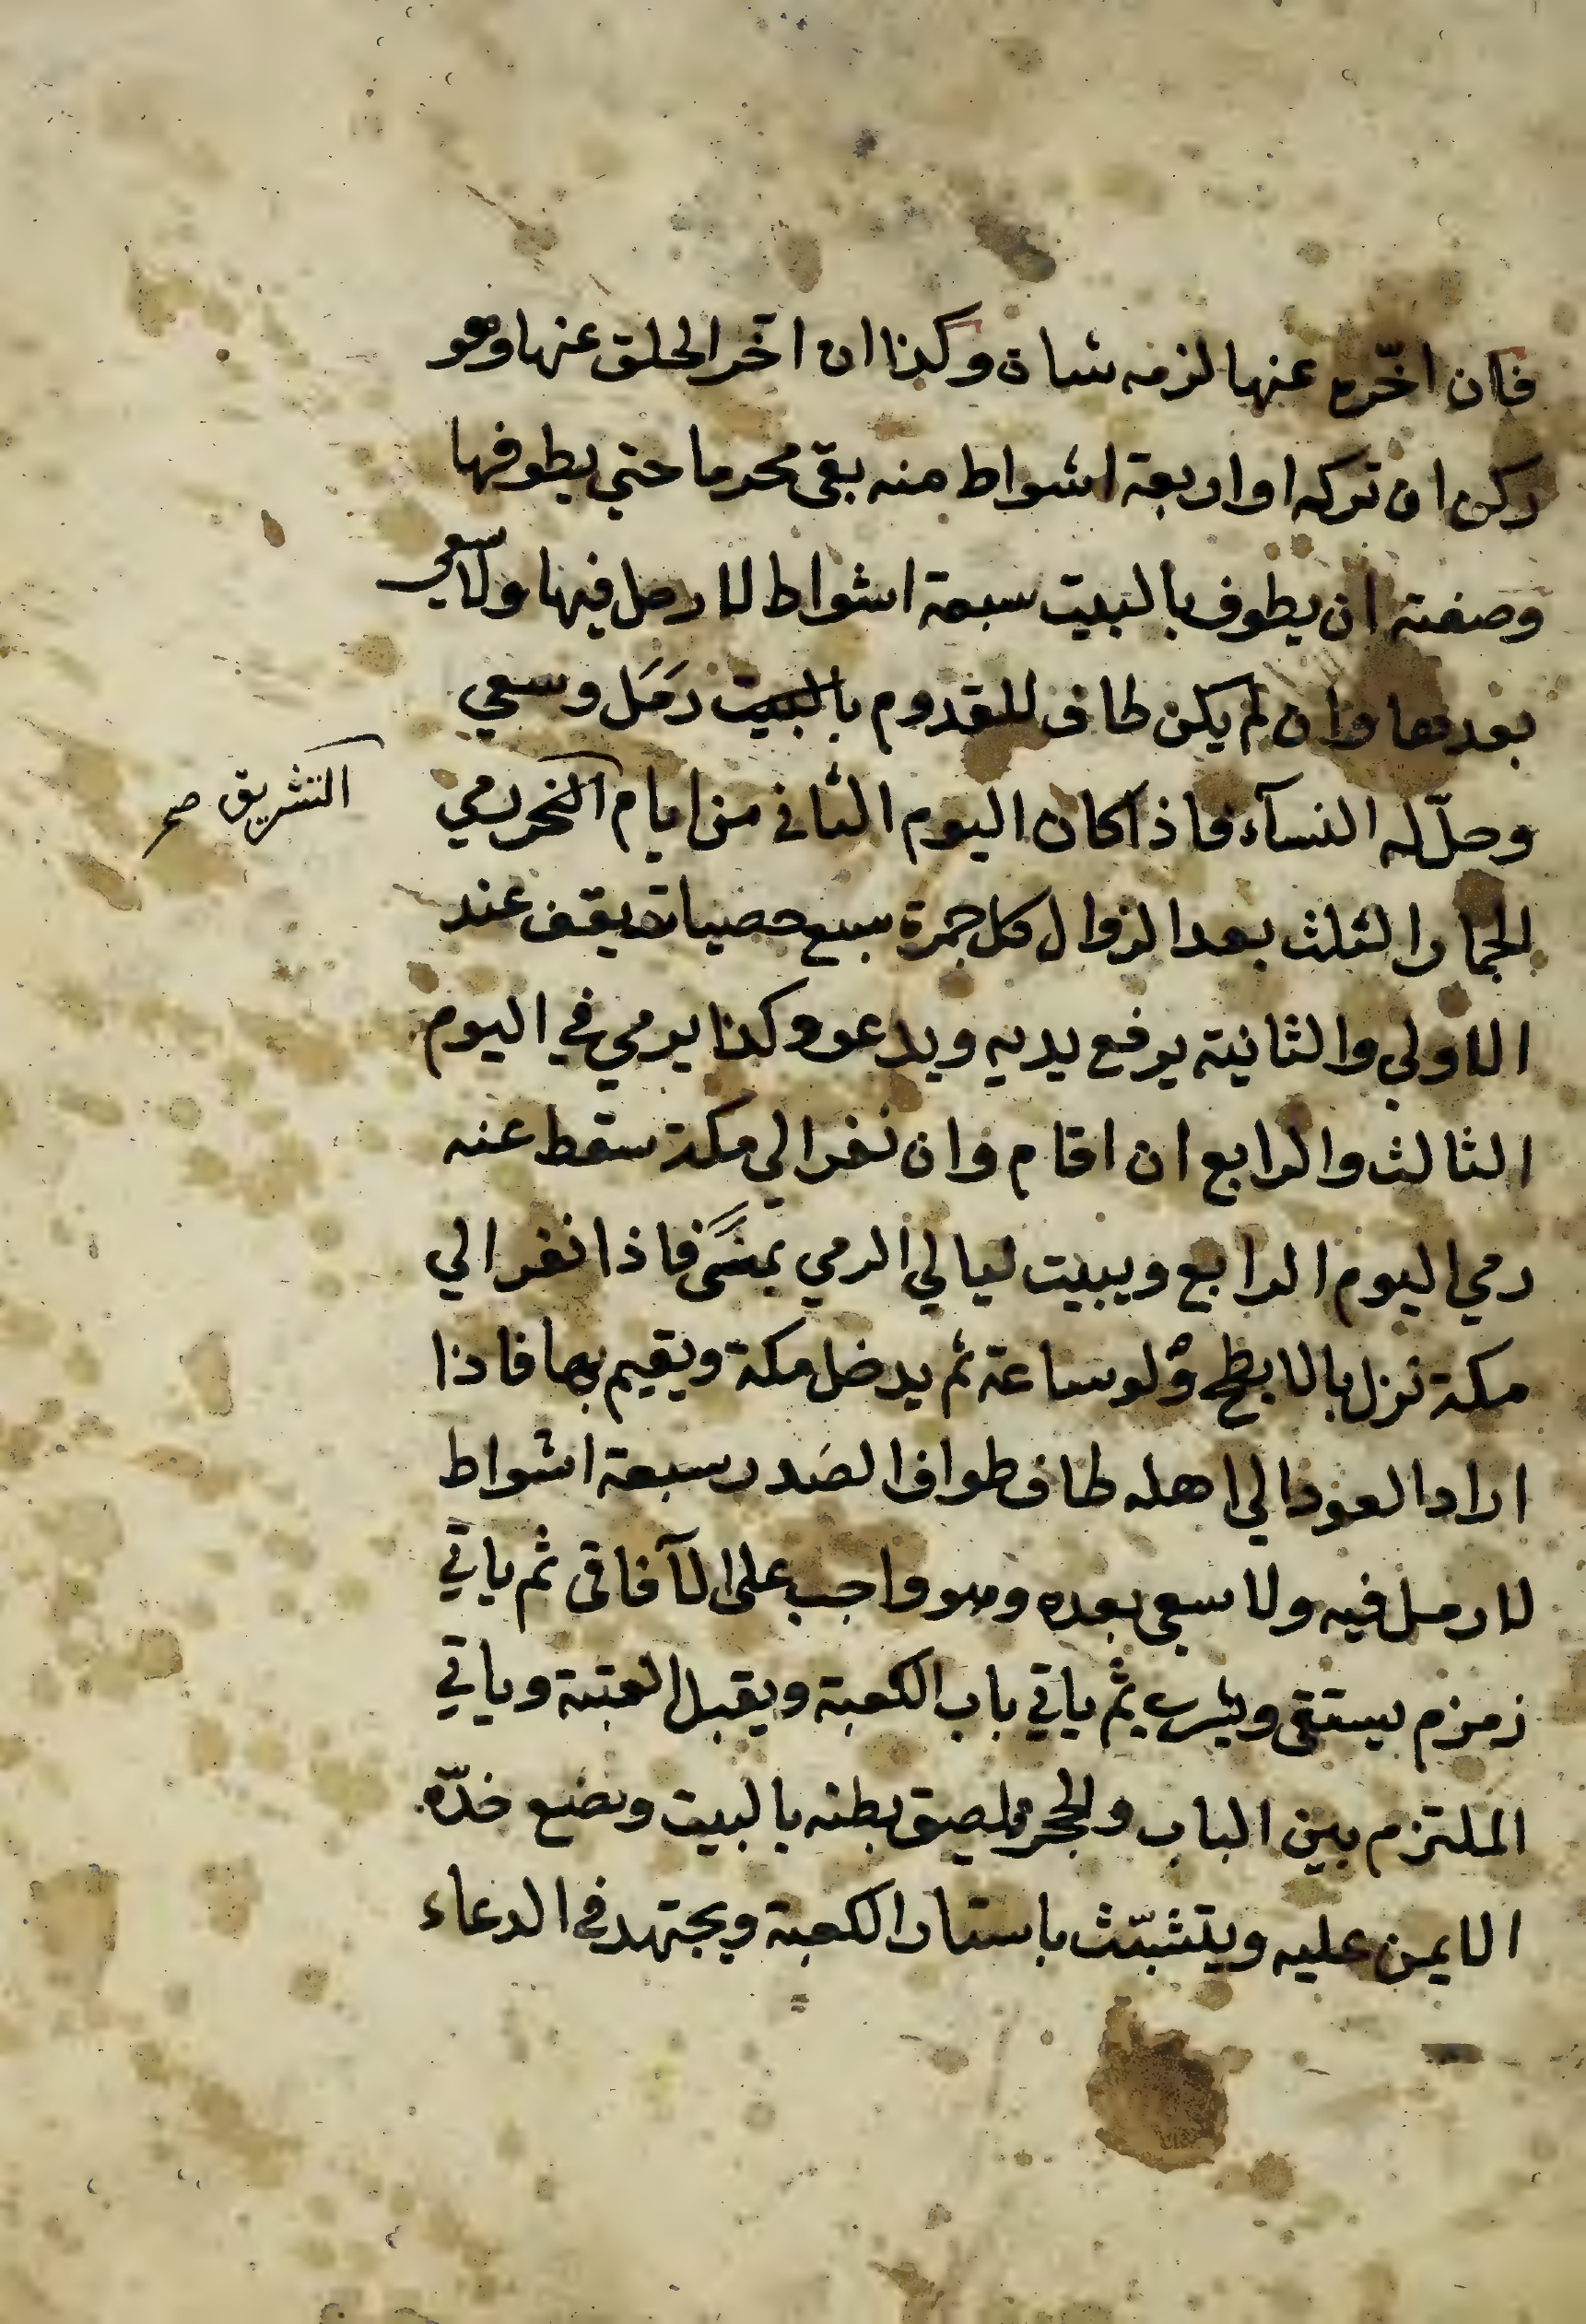 فان اخّره عنها لزمه شاة وكذا ان اخّر الحلق عنها وهو
ركن ان تركه او اربعة اشواط منه بقى محرما حتي يطوفها
وصفته ان يطوف بالبيت سبعة اشواط لا رمل فيها ولا سعي
بعدها وان لم يكن طاف للقدوم بالبيت رَمَل وسعي
وحلّ له النسآء فاذا كان اليوم الثاني من ايام النحر رمي
التشريق صح
الجمار الثلث بعد الزوال كل جمرة سبع حصيات يقف عند
الاولي والثانية يرفع يديه ويدعو وكذا يرمي في اليوم
الثالث والرابع ان اقام وان نفر الي مكة سقط عنه
رمي اليوم الرابع ويبيت ليالي الرمي بمنًى فاذا نفر الي
مكة نزل بالابطح ولو ساعة ثم يدخل مكة ويقيم بها فاذا
اراد العود الي اهله طاف طواف الصَدر سبعة اشواط
لا رمل فيه ولا سعي بعده وهو واجب على الآفاقى ثم ياتي
زمزم يستقى ويشرب ثم ياتي باب الكعبة ويقبل العتبة وياتي
الملتزم بين الباب والحجر فيلصق بطنه بالبيت ويضع خدّه
الايمن عليه ويتشبّث باستار الكعبة ويجتهد في الدعاء